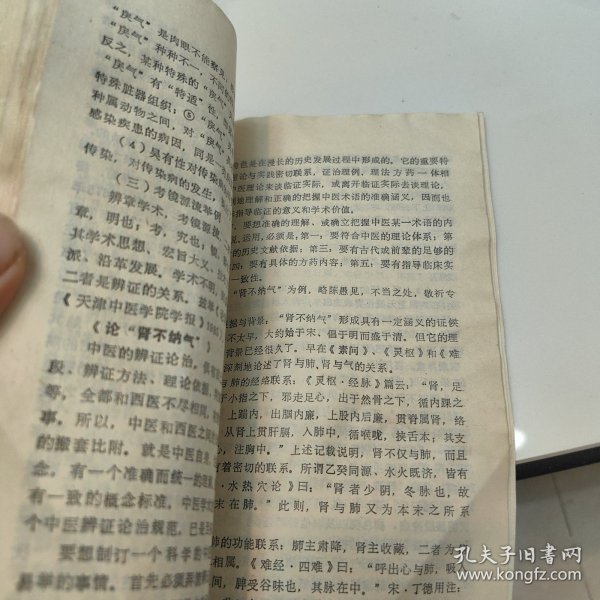 “戾气”是肉眼不能察见
“戾气”种种不一，不同的
反之，某种特殊的“戾气”
“戾气”有“特适”性，
特殊脏器组织；⑤“戾气”
种属动物之间，对“戾气”
感染疾患的病因，同是一
（4）吴有性对传染病
传染，对传染病的发生、
（三）考镜源流举例
辨章学术，考镜源流
章，明也；考，究也；镜
其学术思想、宏旨大义、
派、沿革发展。学术不明，
二者是辨证的关系。兹举《
《天津中医学院学报》198
《论“肾不纳气”》
中医的辨证论治，
段、辨证方法、理论依据
等，全都和西医不尽相同，
事。所以，中医和西医之间
的撒套比附。就是中医自身
念。有一个准确而统一的
有一致的概念标准，中医学
个中医辨证论治规范，已是
要想制订一个科学的
易举的事情。首先必须弄清
色是在漫长的历史发展过程中形成的。它的重要特
理论与实践密切联系，证治理例，理法方药一体相
中医理论来谈临证实际，或离开临证实际去谈理论，
地理解和正确的把握中医术语的准确涵义，因而也
指导临证的意义和学术价值。
要想准确的理解、或确立把握中医某一术语的内
运用，必须是：第一：要符合中医的理论体系；第
的历史文献依据；第三：要有古代或前辈的足够的
四：要有具体的方药内容；第五：要有指导临床实
一致性：
“肾不纳气”为例，略陈愚见，不当之处，敬祈专
据与背景：“肾不纳气”形成具有一定涵义的证候
不太早，大约始于宋、倡于明而盛于清。但它的理
背景已经很久了。早在《素问》、《灵枢》和《难
深刻地论述了肾与肺、肾与气的关系。
与肺的经络联系：《灵枢·经脉》篇云：“肾，足
于小指之下，邪走足心，出于然骨之下，循内踝之
上踹内，出腘内廉，上股内后廉，贯脊属肾，络
从肾上贯肝膈，入肺中，循喉咙，挟舌本；其支
心，注胸中。”上述记载说明，肾不仅与肺，而且
着密切的联系。所谓乙癸同源、水火既济，皆有
·水热穴论》曰：“肾者少阴，冬脉也，故
末在肺。”此则，肾与肺又为本末之所系
肺的功能联系：肺主肃降，肾主收藏，二者为
相属。《难经·四难》曰：“呼出心与肺，吸入
间，脾受谷味也，其脉在中。”宋·丁德用注：
孔夫子旧书网
www.kongfz.com